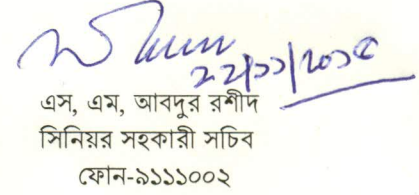 ২২/১১/২০১৫
এস, এম, আবদুর রশীদ
সিনিয়র সহকারী সচিব
ফোন-৯১১১০০২